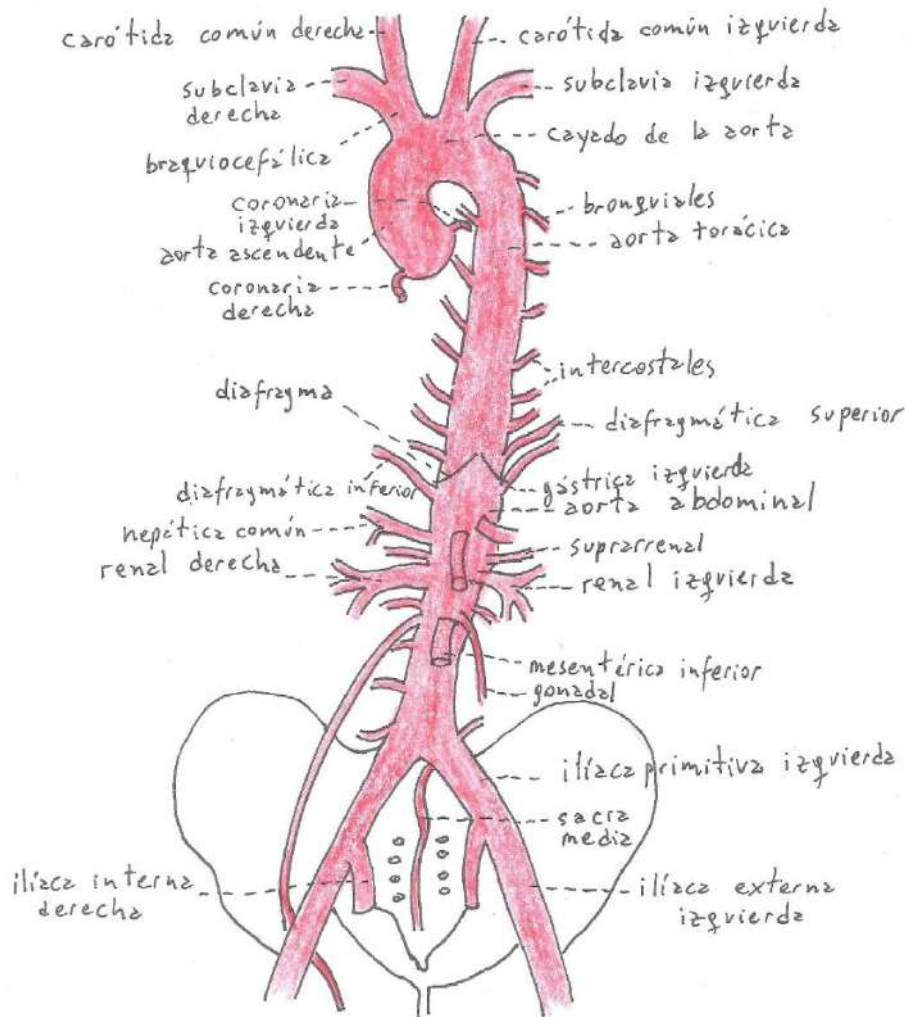 carótida común derecha
carótida común izquierda
subclavia
derecha
subclavia izquierda
braquiocefálica
cayado de la aorta
coronaria
izquierda
bronquiales
aorta ascendente
aorta torácica
coronaria
derecha
intercostales
diafragma
diafragmática superior
diafragmática inferior
gástrica izquierda
aorta abdominal
hepática común
suprarrenal
renal derecha
renal izquierda
mesentérica inferior
gonadal
ilíaca primitiva izquierda
sacra
media
ilíaca interna
derecha
ilíaca externa
izquierda